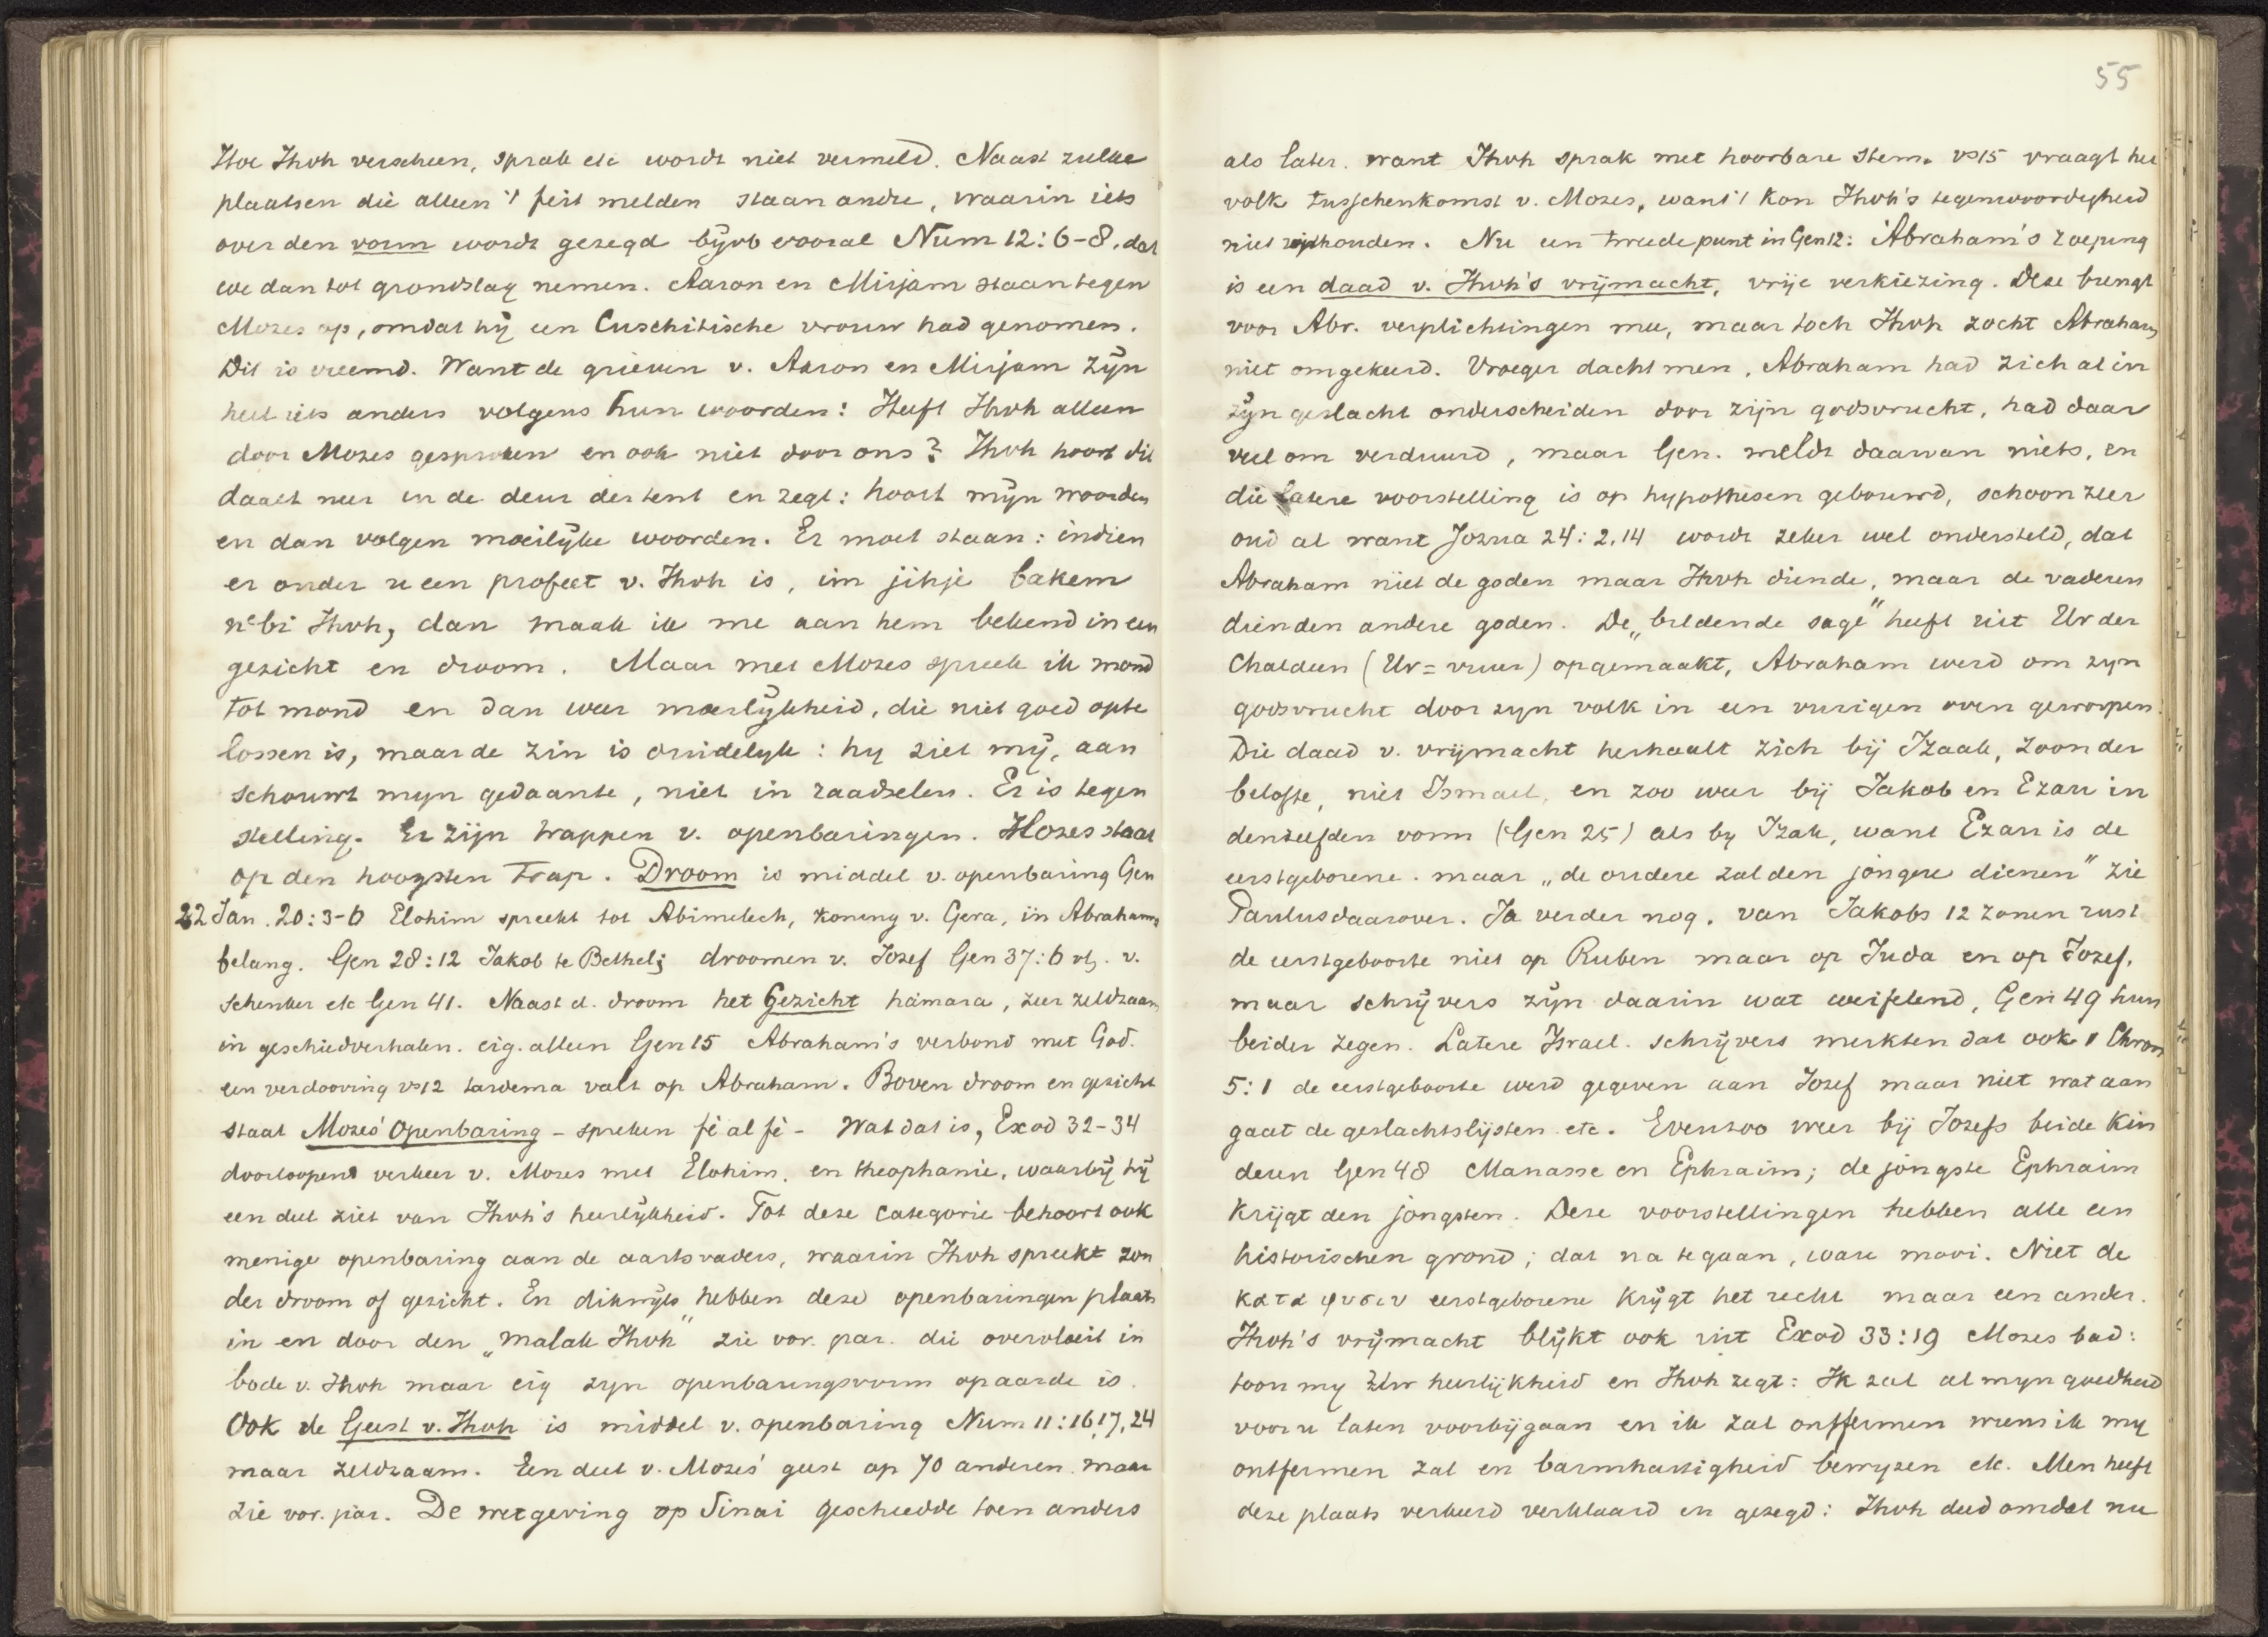 Hoe Jhvh verscheen, sprak etc wordt niet vermeld. Naast zulke
plaatsen die alleen 't feit melden staan andre, waarin iets
over den vorm wordt gezegd bijvb vooral Num 12:6-8, dat
we dan tot grondslag nemen. Aaron en Mirjam staan tegen
Mozes op, omdat hij een Cuschitische vrouw had genomen.
Dit is vreemd. Want de grieven v. Aaron en Mirjam zijn
heel iets anders volgens hun woorden: Heeft Jhvh alleen
door Mozes gesproken en ook niet door ons? Jhvh hoort dit
daalt neer in de deur der tent en zegt: hoort mijn woorden
en dan volgen moeilijke woorden. Er moet staan: indien
er onder u een profeet v. Jhvh is, im jihje bakem
nebi Jhvh, dan maak ik me aan hem bekend in een
gezicht en droom. Maar met Mozes spreek ik mond
tot mond en dan weer moeilijkheid, die niet goed opte
lossen is, maar de zin is duidelyk: hy ziet mij, aan
schouwt myn gedaante, niet in raadselen. Er is tegen
stelling. Er zijn trappen v. openbaringen. Mozes staat
op den hoogsten trap. Droom is middel v. openbaring Gen
22 Jan. 20:3-6 Elohim spreekt tot Abimelech, koning v. Gera, in Abrahams
belang. Gen 28:12 Jakob te Bethel; droomen v. Jozef Gen 37:6 vlg. v.
schenker etc Gen 41. Naast d. droom het Gezicht hamara, zeer zeldzaam
in geschiedverhalen. eig. alleen Gen 15 Abraham's verbond met God.
een verdooving vs12 tardema valt op Abraham. Boven droom en gezicht
staat Mozes' Openbaring - spreken fè al fè - Wat dat is, Exod 32-34
doorloopend verkeer v. Mozes met Elohim, en theophanie, waarbij hij
een deel ziet van Jhvh's heerlijkheid. Tot deze categorie behoort ook
menige openbaring aan de aartsvaders, waarin Jhvh spreekt zon
der droom of gezicht. En dikwijls hebben deze openbaringen plaats
in en door den „malak Jhvh" zie vor. par. die overvloeit in
bode v. Jhvh maar eig zyn openbaringsvorm op aarde is.
Ook de Geest v. Jhvh is middel v. openbaring Num 11:16,17,24
maar zeldzaam. Een deel v. Mozes' geest op 70 anderen. maar
zie vor. par. De wetgeving op Sinai geschiedde toen anders
55
als later. want Jhvh sprak met hoorbare stem. vs15 vraagt het
volk tusschenkomst v. Mozes, want 't kon Jhvh's tegenwoordigheid
niet uithouden. Nu een tweede punt in Gen 12: Abraham's roeping
is een daad v. Jhvh's vrijmacht, vrije verkiezing. Deze brengt
voor Abr. verplichtingen mee, maar toch Jhvh zocht Abraham,
niet omgekeerd. Vroeger dacht men, Abraham had zich al in
zijn geslacht onderscheiden door zijn godsvrucht, had daar
veel om verduurd, maar Gen. meldt daarvan niets, en
die latere voorstelling is op hypothesen gebouwd, schoon zeer
oud al want Jozua 24:2,14 wordt zeker wel ondersteld, dat
Abraham niet de goden maar Jhvh diende, maar de vaderen
dienden andere goden. De „beeldende sage" heeft uit Ur der
Chaldeen (Ur = vuur) opgemaakt, Abraham werd om zyn
godsvrucht door zyn volk in een vurigen oven geworpen.
Die daad v. vrijmacht herhaalt zich bij Izaak, zoon der
belofte, niet Ismael, en zoo weer bij Jakob en Ezau in
denzelfden vorm (Gen 25) als by Izak, want Ezau is de
eerstgeborene. maar „de oudere zal den jongere dienen" zie
Paulus daarover. Ja verder nog, van Jakobs 12 zonen rust
de eerstgeboorte niet op Ruben maar op Juda en op Jozef,
maar schrijvers zijn daarin wat weifelend, Gen 49 hun
beider zegen. Latere Israel. schrijvers merkten dat ook 1 Chron
5:1 de eerstgeboorte werd gegeven aan Jozef maar niet wat aan
gaat de geslachtslijsten etc. Evenzoo weer bij Jozefs beide kin
deren Gen 48 Manasse en Ephraim; de jongste Ephraim
krijgt den jongsten. Deze voorstellingen hebben alle een
historischen grond; dat na te gaan, ware mooi. Niet de
κατα φυσιν eerstgeborene krijgt het recht maar een ander.
Jhvh's vrijmacht blijkt ook uit Exod 33:19 Mozes bad:
toon my Uw heerlijkheid en Jhvh zegt: Ik zal al myn goedheid
voor u laten voorbijgaan en ik zal ontfermen wiens ik my
ontfermen zal en barmhartigheid bewyzen etc. Men heeft
deze plaats verkeerd verklaard en gezegd: Jhvh deed omdat nu